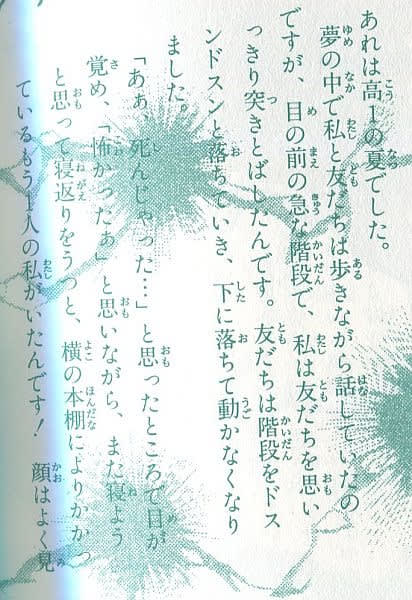 あれは高1の夏でした。
夢の中で私と友だちは歩きながら話していたの
ですが、目の前の急な階段で、私は友だちを思い
っきり突きとばしたんです。友だちは階段をドス
ンドスンと落ちていき、下に落ちて動かなくなり
ました。
「あぁ、死んじゃった…」と思ったところで目が
覚め、「怖かったぁ」と思いながら、また寝よう
と思って寝返りをうつと、横の本棚によりかかっ
ているもう1人の私がいたんです! 顔はよく見